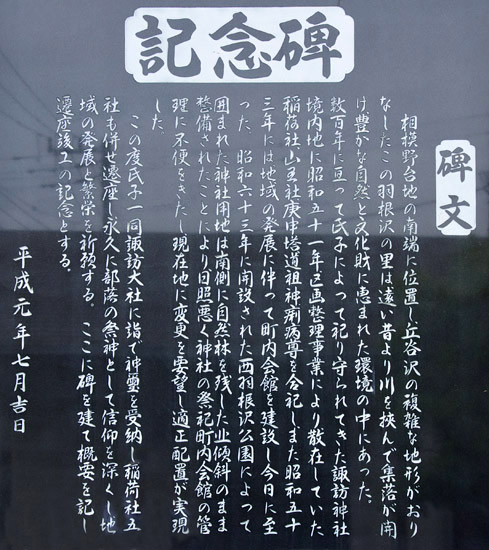 記念碑
碑文
相模野台地の南端に位置し丘谷沢の複雑な地形がおり
なしたこの羽根沢の里は遠い昔より川を挟んで集落が開
け豊かな自然と文化財に恵まれた環境の中にあった。
数百年に亘って氏子によって祀り守られてきた諏訪神社
境内地に昭和五十一年区画整理事業により散在していた
稲荷社山王社庚申塔道祖神疱病尊を合祀しまた昭和五十
三年には地域の発展に伴って町内会館を建設し今日に至
った。昭和六十三年に開設された西羽根沢公園によって
囲まれた神社用地は南側に自然林を残した山傾斜のまま
整備されたことにより日照悪く神社の祭祀町内会館の管
理に不便をきたし現在地に変更を要望し適正配置が実現
した。
この度氏子一同諏訪大社に詣で神璽を受納し稲荷社五
社も併せ遷座し永久に部落の祭神として信仰を深くし地
域の発展と繁栄を祈願する。ここに碑を建て概要を記し
遷座竣工の記念とする。
平成元年七月吉日